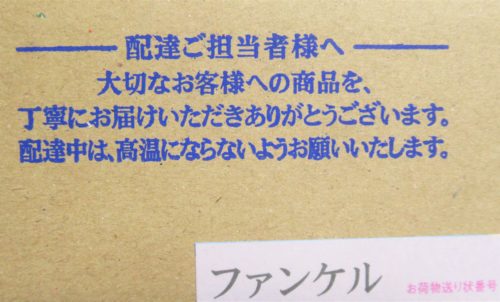 配達ご担当者様へ
大切なお客様への商品を、
丁寧にお届けいただきありがとうございます。
配達中は、高温にならないようお願いいたします。
ファンケル
お荷物送り状番号